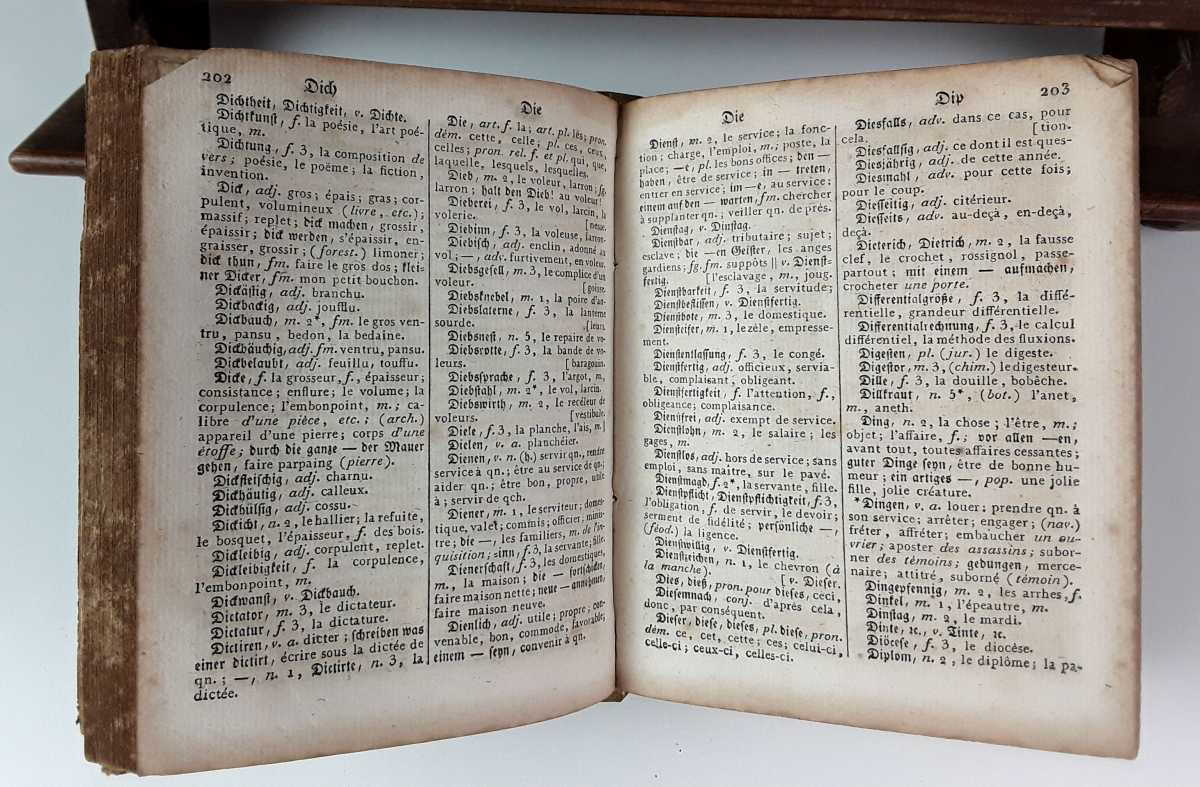 202
Dich
Dichtheit, Dichtigkeit, v. Dichte.
Dichtkunst, f. la poésie, l'art poé-
tique, m.
Dichtung, f. 3, la composition de
vers; poésie, le poëme; la fiction,
invention.
Dick, adj. gros; épais; gras; cor-
pulent, volumineux (livre, etc.);
massif; replet; dick machen, grossir,
épaissir; dick werden, s'épaissir, en-
graisser, grossir; (forest.) limoner;
dick thun, fm. faire le gros dos; klei-
ner Dicker, fm. mon petit bouchon.
Dickästig, adj. branchu.
Dickbackig, adj. joufflu.
Dickbauch, m. 2*, fm. le gros ven-
tru, pansu, bedon, la bedaine.
Dickbäuchig, adj. fm. ventru, pansu.
Dickbelaubt, adj. feuillu, touffu.
Dicke, f. la grosseur, f., épaisseur;
consistance; enflure; le volume; la
corpulence; l'embonpoint, m.; ca-
libre d'une pièce, etc.; (arch.)
appareil d'une pierre; corps d'une
étoffe; durch die ganze — der Mauer
gehen, faire parpaing (pierre).
Dickfleischig, adj. charnu.
Dickhäutig, adj. calleux.
Dickhülsig, adj. cossu.
Dickicht, n. 2, le hallier; la refuite,
le bosquet, l'épaisseur, f. des bois.
Dickleibig, adj. corpulent, replet.
Dickleibigkeit, f. la corpulence,
l'embonpoint, m.
Dickwanst, v. Dickbauch.
Dictator, m. 3, le dictateur.
Dictatur, f. 3, la dictature.
Dictiren, v. a. dicter; schreiben was
einer dictirt, écrire sous la dictée de
qn.; —, n. 1, Dictirte, n. 3, la
dictée.
Die
Die, art. f. la; art. pl. les; pron.
dém. cette, celle; pl. ces, ceux,
celles; pron. rel. f. et pl. qui, que,
laquelle, lesquels, lesquelles.
Dieb, m. 2, le voleur, larron; fg.
larron; halt den Dieb! au voleur!
Dieberei, f. 3, le vol, larcin, la
volerie. [neuse.
Diebinn, f. 3, la voleuse, larron-
Diebisch, adj. enclin, adonné au
vol; —, adv. furtivement, en voleur.
Diebsgesell, m. 3, le complice d'un
voleur. [goisse.
Diebsknebel, m. 1, la poire d'an-
Diebslaterne, f. 3, la lanterne
sourde. [leurs.
Diebsnest, n. 5, le repaire de vo-
Diebsrotte, f. 3, la bande de vo-
leurs. [baragouin.
Diebssprache, f. 3, l'argot, m,
Diebstahl, m. 2*, le vol, larcin.
Diebswirth, m. 2, le recéleur de
voleurs. [vestibule.
Diele, f. 3, la planche, l'ais, m.]
Dielen, v. a. planchéier.
Dienen, v. n. (h.) servir qn., rendre
service à qn.; être au service de qn;
aider qn.; être bon, propre, utile
à; servir de qch.
Diener, m. 1, le serviteur; domes-
tique, valet; commis; officier; minis-
tre; die —, les familiers, m. de l'in-
quisition; -inn, f. 3, la servante; fille.
Dienerschaft, f. 3, les domestiques,
m., la maison; die — fortschicken,
faire maison nette; neue — annehmen,
faire maison neuve.
Dienlich, adj. utile; propre, con-
venable, bon, commode, favorable;
einem — seyn, convenir à qn.
Die
Dienst, m. 2, le service; la fonc-
tion; charge, l'emploi, m.; poste, la
place; —e, pl. les bons offices; den —
haben, être de service; in — treten,
entrer en service; im —e, au service;
einem auf den — warten, fm. chercher
à supplanter qn.; veiller qn. de près.
Dienstag, v. Dinstag.
Dienstbar, adj. tributaire; sujet;
esclave; die —en Geister, les anges
gardiens; fg. fm. suppôts || v. Dienst=
fertig. [l'esclavage, m., joug.
Dienstbarkeit, f. 3, la servitude;
Dienstbeflissen, v. Dienstfertig.
Dienstbote, m. 3, le domestique.
Diensteifer, m. 1, le zèle, empresse-
ment.
Dienstentlassung, f. 3, le congé.
Dienstfertig, adj. officieux, servia-
ble, complaisant, obligeant.
Dienstfertigkeit, f. l'attention, f.,
obligeance; complaisance.
Dienstfrei, adj. exempt de service.
Dienstlohn, m. 2, le salaire; les
gages, m.
Dienstlos, adj. hors de service; sans
emploi, sans maître, sur le pavé.
Dienstmagd, f. 2*, la servante, fille.
Dienstpflicht, Dienstpflichtigkeit, f. 3,
l'obligation, f. de servir, le devoir;
serment de fidélité; persönliche —,
(féod.) la ligence.
Dienstwillig, v. Dienstfertig.
Dienstzeichen, n. 1, le chevron (à
la manche). [v. Dieser.
Dies, dieß, pron. pour dieses, ceci,
Diesemnach, conj. d'après cela,
donc, par conséquent.
Dieser, diese, dieses, pl. diese, pron.
dém. ce, cet, cette; ces; celui-ci,
celle-ci; ceux-ci, celles-ci.
Dip
203
Diesfalls, adv. dans ce cas, pour
cela. [tion.
Diesfallsig, adj. ce dont il est ques-
Diesjährig, adj. de cette année.
Diesmahl, adv. pour cette fois;
pour le coup.
Diesseitig, adj. citérieur.
Diesseits, adv. au-deçà, en-deçà,
deçà.
Dieterich, Dietrich, m. 2, la fausse
clef, le crochet, rossignol, passe-
partout; mit einem — aufmachen,
crocheter une porte.
Differentialgröße, f. 3, la diffé-
rentielle, grandeur différentielle.
Differentialrechnung, f. 3, le calcul
différentiel, la méthode des fluxions.
Digesten, pl. (jur.) le digeste.
Digestor, m. 3, (chim.) le digesteur.
Dille, f. 3, la douille, bobêche.
Dillkraut, n. 5*, (bot.) l'anet,
m., aneth.
Ding, n. 2, la chose; l'être, m.;
objet; l'affaire, f.; vor allen —en,
avant tout, toutes affaires cessantes;
guter Dinge seyn, être de bonne hu-
meur; ein artiges —, pop. une jolie
fille, jolie créature.
*Dingen, v. a. louer; prendre qn. à
son service; arrêter; engager; (nav.)
fréter, affréter; embaucher un ou-
vrier; aposter des assassins; subor-
ner des témoins; gedungen, merce-
naire; attitré, suborné (témoin).
Dingepfennig, m. 2, les arrhes, f.
Dinkel, m. 1, l'épeautre, m.
Dinstag, m. 2, le mardi.
Dinte, ꝛc., v. Tinte, ꝛc.
Diöcese, f. 3, le diocèse.
Diplom, n. 2, le diplôme; la pa-